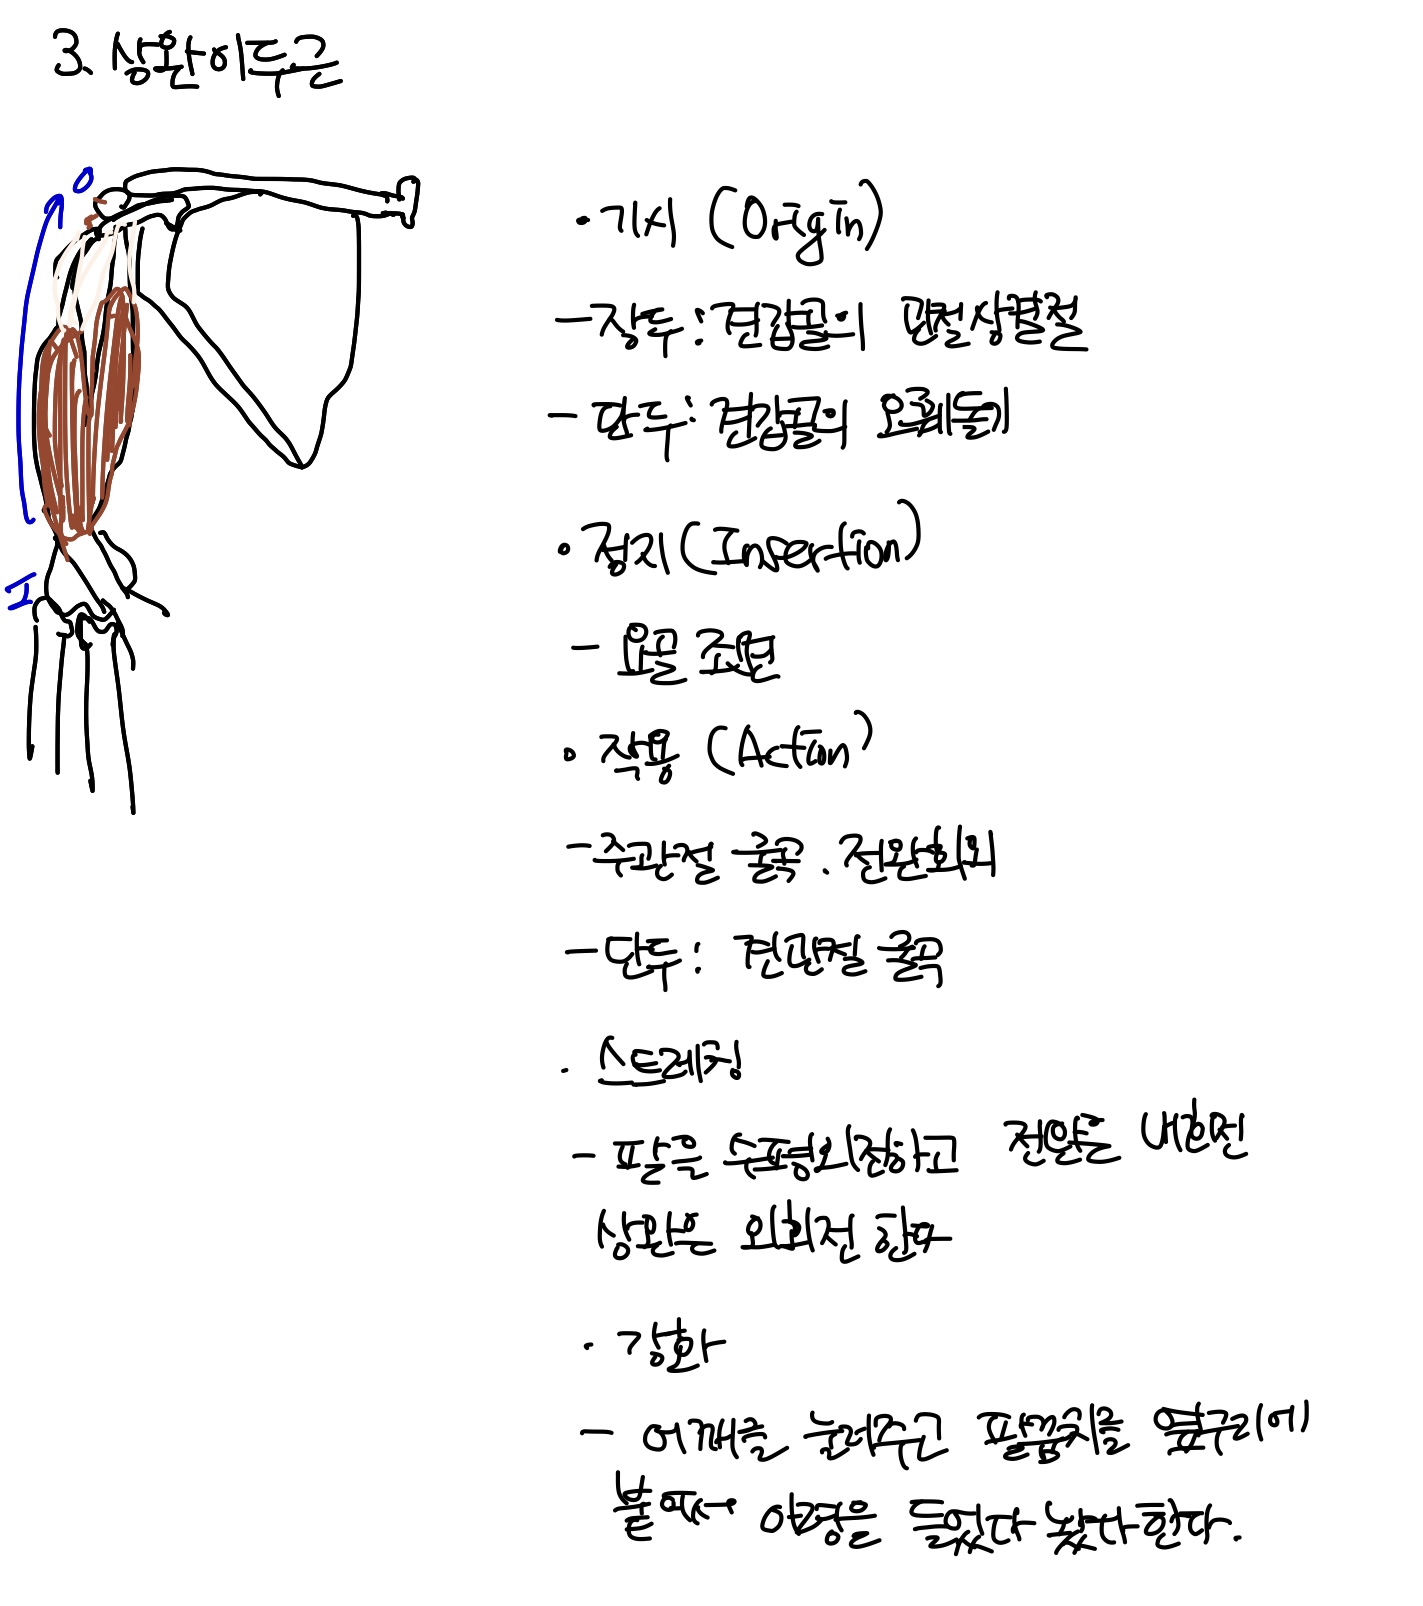 3. 상완이두근
O
I
• 기시 (Origin)
- 장두 : 견갑골의 관절상결절
- 단두 : 견갑골의 오훼돌기
• 정지 (Insertion)
- 요골 조면
• 작용 (Action)
- 주관절 굴곡 . 전완회외
- 단두 : 견관절 굴곡
. 스트레칭
- 팔을 수평외전하고 전완을 내회전
상완은 외회전 한다
. 강화
- 어깨를 눌러주고 팔꿈치를 옆구리에
붙여서 아령을 들었다 놨다한다.